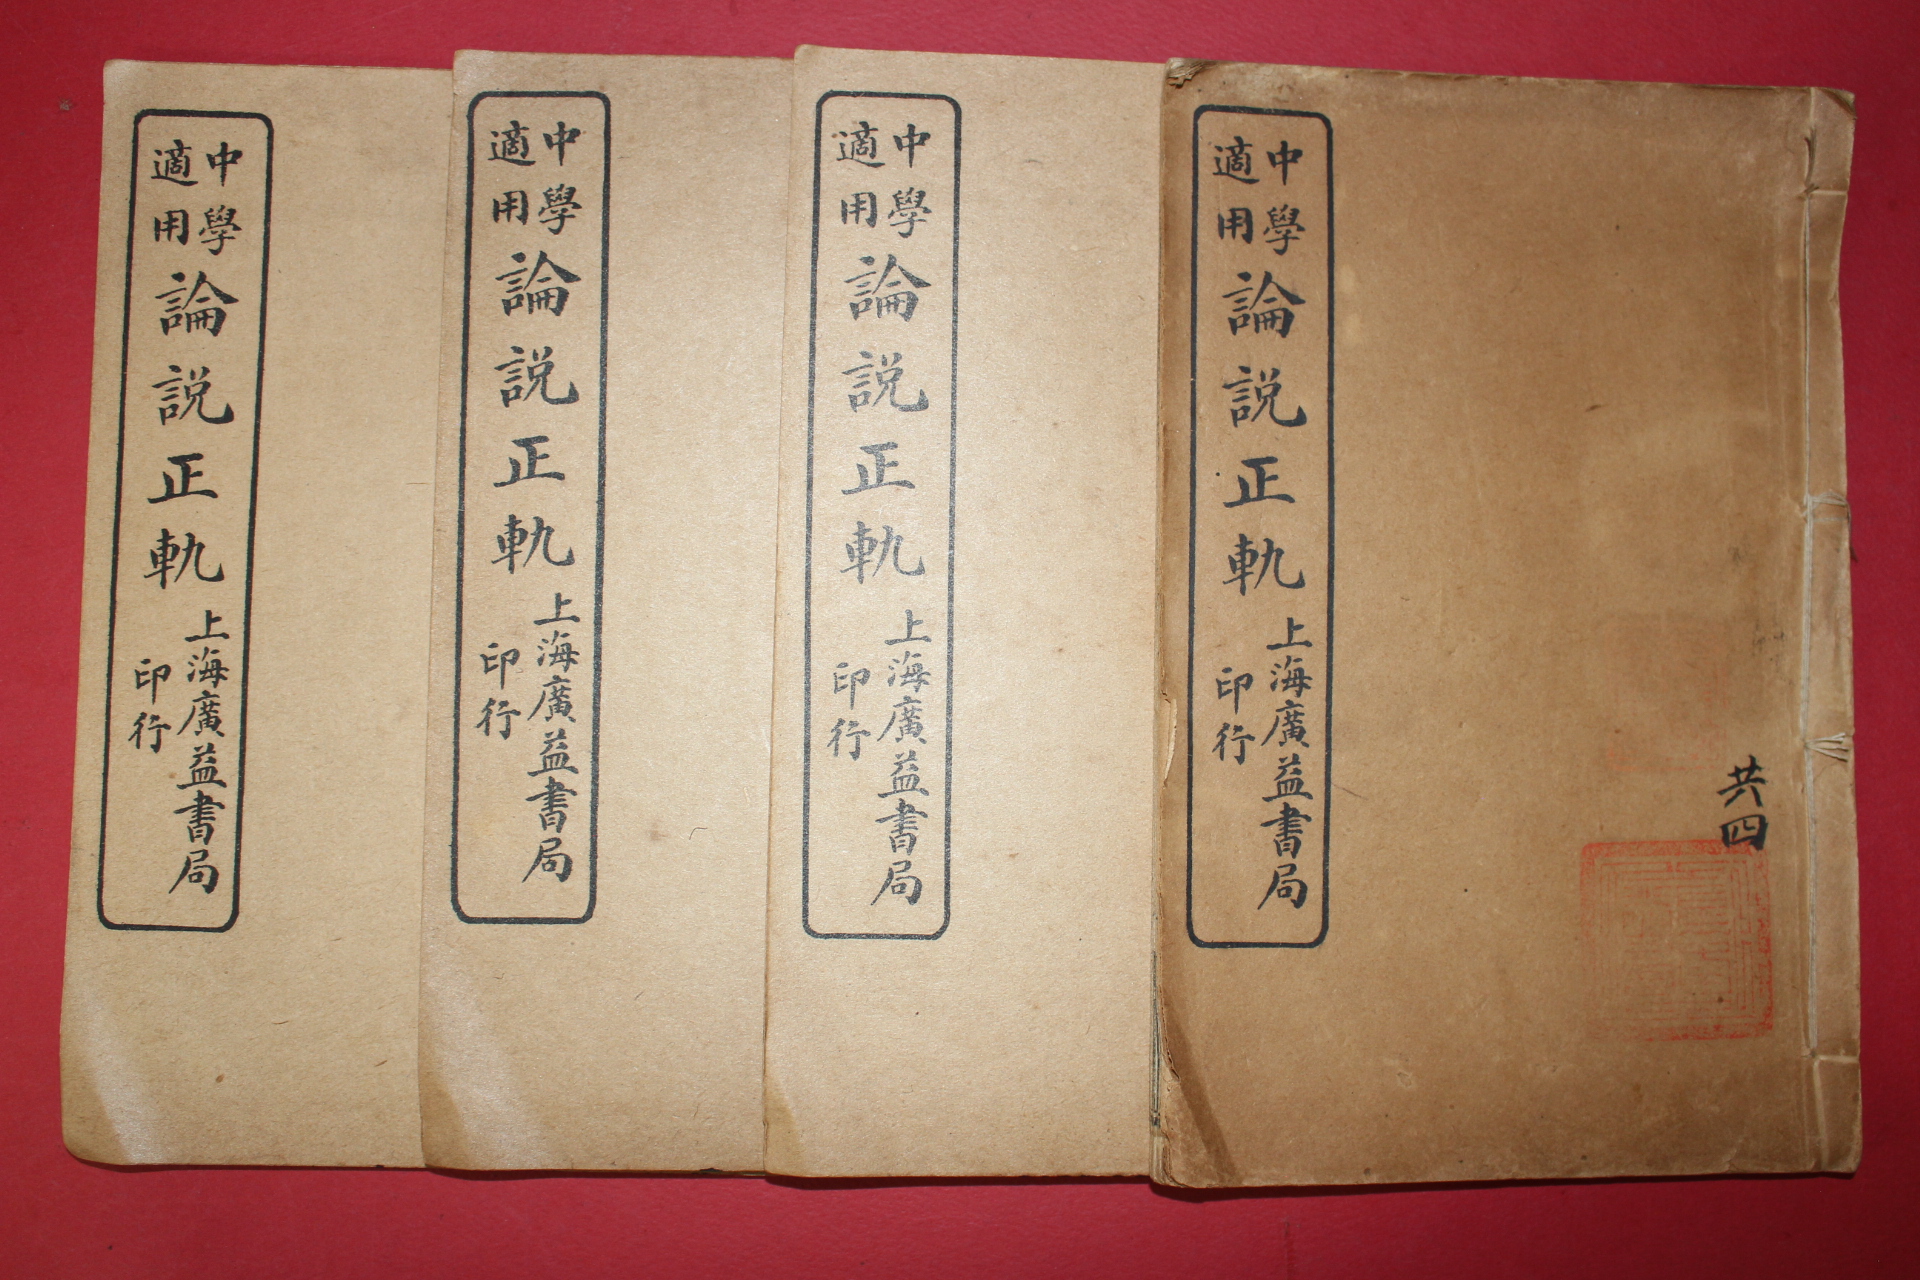 共四
中學
適用
論說正軌
上海廣益書局
印行
中學
適用
論說正軌
上海廣益書局
印行
中學
適用
論說正軌
上海廣益書局
印行
中學
適用
論說正軌
上海廣益書局
印行